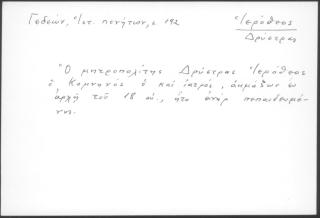 Γεδεών, Ἱστ. πενήτων, σ. 192
Ἱερόθεος
Δρύστρας
Ὁ μητροπολίτης Δρύστρας Ἱερόθεος
ὁ Κομνηνός ὁ καί ἰατρός, ἀκμάζων ἐν
ἀρχῇ τοῦ 18 αἰ., ἦτο ἀνήρ πεπαιδευμέ-
νος.